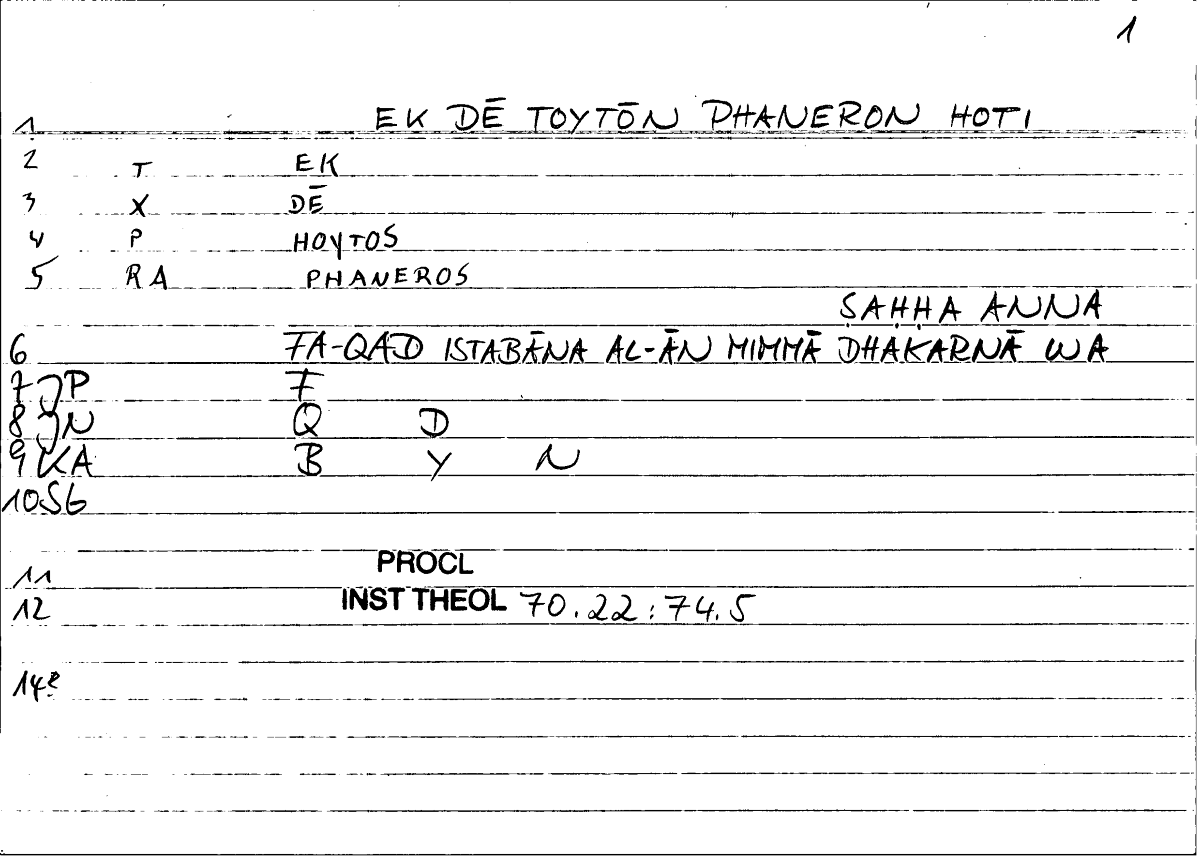 1
1 EK DĒ TOYTŌN PHANERON HOTI
2 T EK
3 X DĒ
4 P HOYTOS
5 RA PHANEROS
ṢAḤḤA ANNA
6 FA-QAD ISTABĀNA AL-ĀN MIMMĀ DHAKARNĀ WA
7 JP F
8 JN Q D
9 KA B Y N
10 SG
11 PROCL
12 INST THEOL 70.22:74.5
14